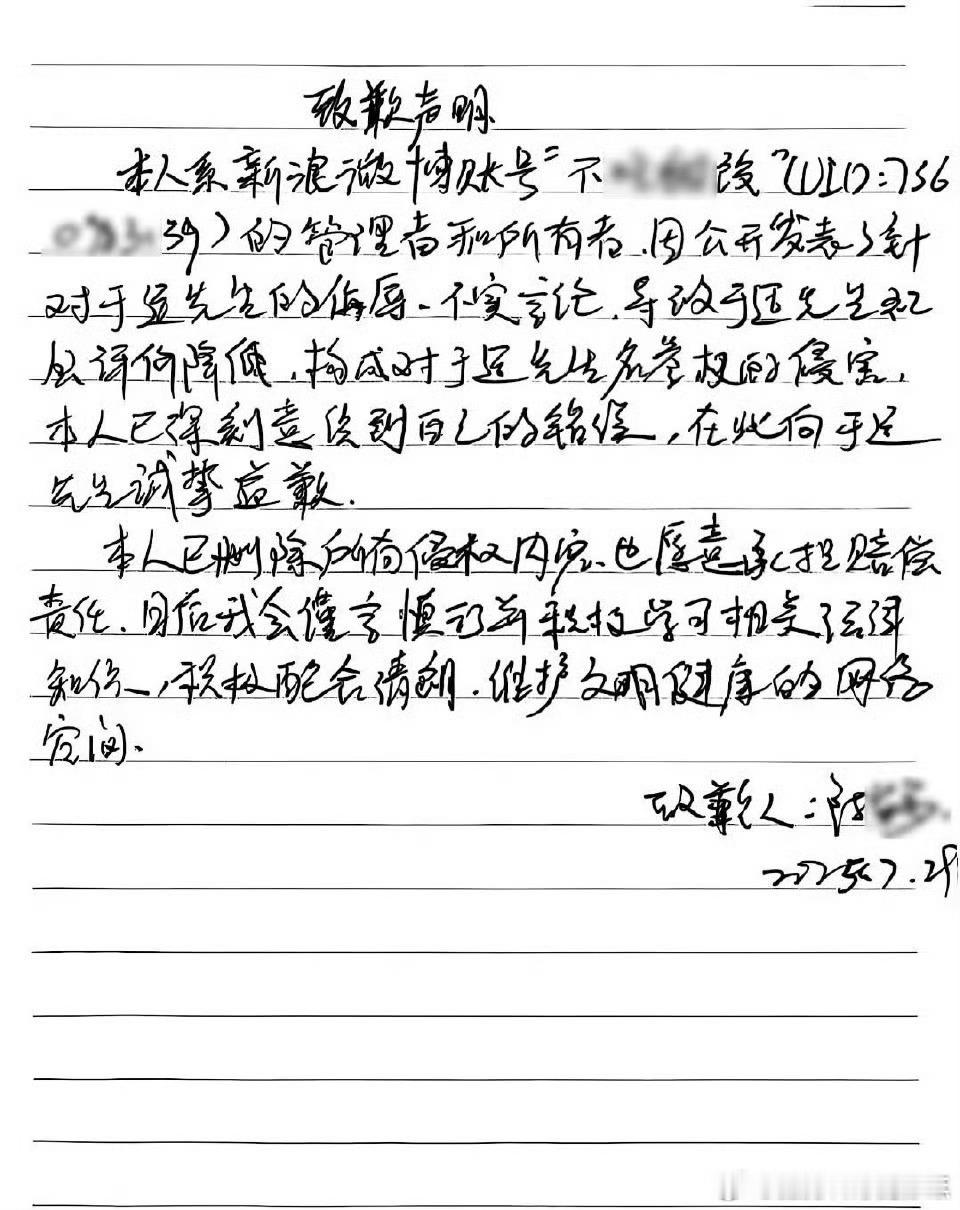 致歉声明
本人系新浪微博账号"不 改"(UID:756
39)的管理者和所有者,因公开发表了针
对于适先生的侮辱、不实言论,导致于适先生社
会评价降低,构成对于适先生名誉权的侵害,
本人已深刻意识到自己的错误,在此向于适
先生诚挚致歉.
本人已删除所有侵权内容、也愿意承担赔偿
责任.日后我会谨言慎行并积极学习相关法律
知识,积极配合清朗.维护文明健康的网络
空间.
致歉人:陈
2025.7.29